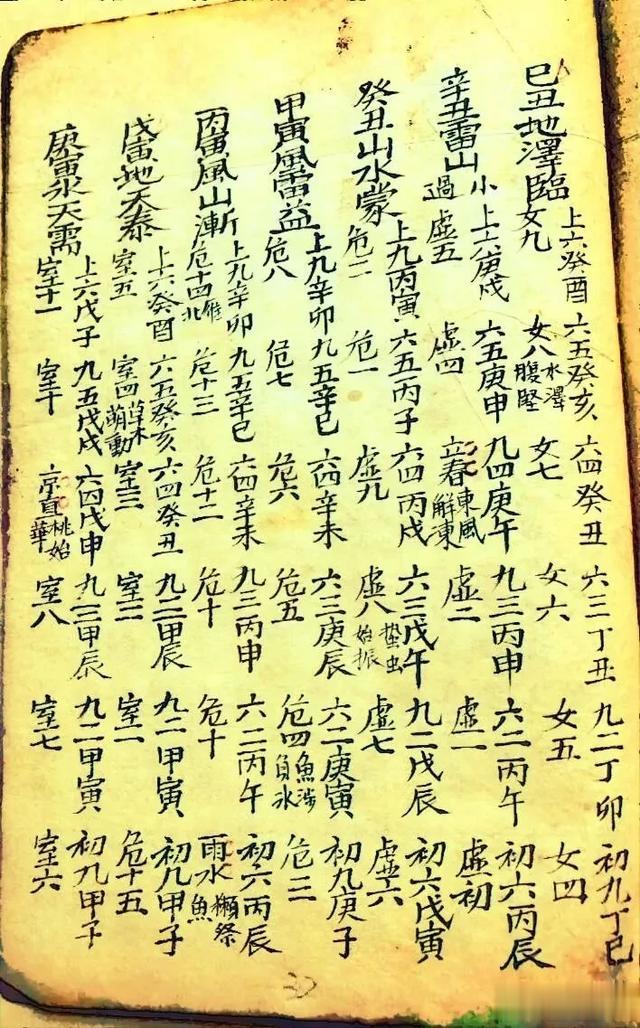 己丑地澤臨
上六癸酉 六五癸亥 六四癸丑 六三丁丑 九二丁卯 初九丁巳
女九 女八 水澤腹堅 女七 女六 女五 女四
辛丑雷山小過
上六庚戌 六五庚申 九四庚午 九三丙申 六二丙午 初六丙辰
虛五 虛四 立春 東風解東 虛二 虛一 虛初
癸丑山水蒙
上九丙寅 六五丙子 六四丙戌 六三戊午 九二戊辰 初六戊寅
危二 危一 虛九 虛八 蟄虫始振 虛七 虛六
甲寅風雷益
上九辛卯 九五辛巳 六四辛未 六三庚辰 六二庚寅 初九庚子
危八 危七 危六 危五 危四 魚涉負冰 危三
丙寅風山漸
上九辛卯 九五辛巳 六四辛未 九三丙申 六二丙午 初六丙辰
危十四 雁北 危十三 危十二 危十 危十 雨水 獺祭魚
戊寅地天泰
上六癸酉 六五癸亥 六四癸丑 九二甲辰 九二甲寅 初九甲子
室五 室四 草木萌動 室三 室二 室一 危十五
庚寅水天需
上六戊子 九五戊戌 六四戊申 九三甲辰 九二甲寅 初九甲子
室十一 室十 京直 桃始華 室八 室七 室六